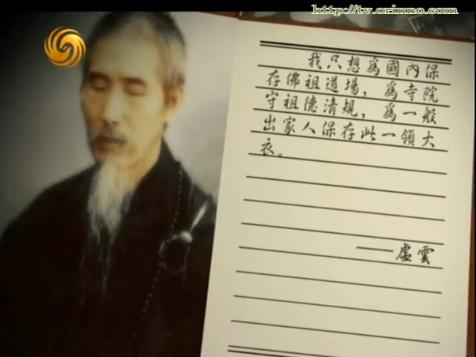 http://tv.orinno.com
我只想為國內保
存佛祖道場，為寺院
守祖德清規，為一般
出家人保存此一領大
衣。
——虛雲